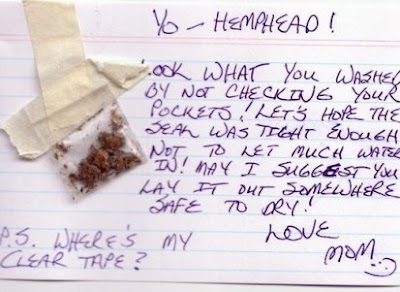 YO - HEMPHEAD!
LOOK WHAT YOU WASHED
BY NOT CHECKING YOUR
POCKETS! LET'S HOPE THE
SEAL WAS TIGHT ENOUGH
NOT TO LET MUCH WATER
IN! MAY I SUGGEST YOU
LAY IT OUT SOMEWHERE
SAFE TO DRY!
LOVE
MOM
P.S. WHERE'S MY
CLEAR TAPE?